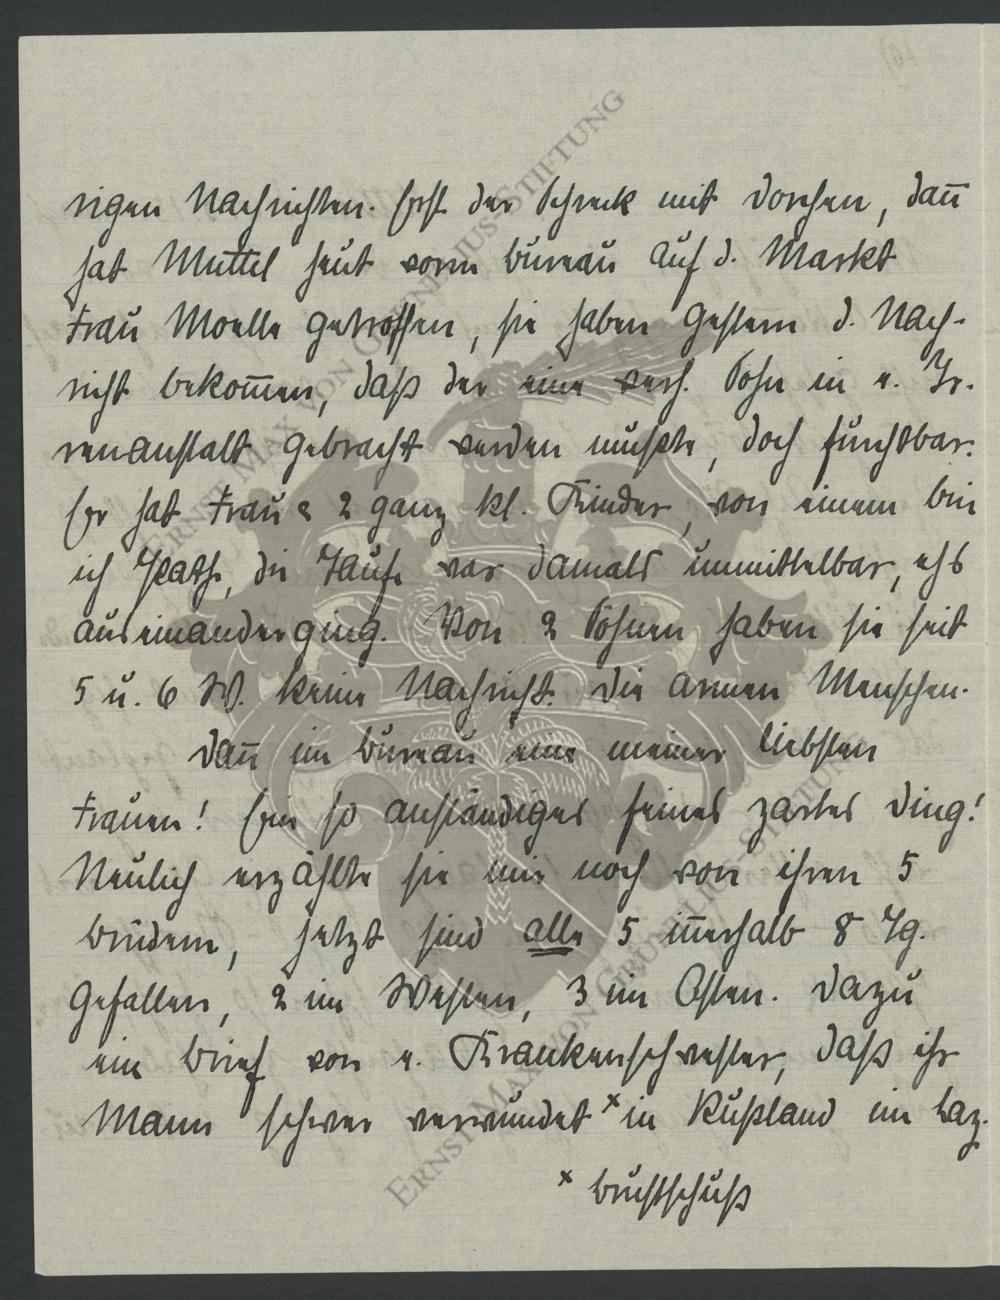 rigen Nachrichten. Erst der Schreck mit Dorchen, dan̄
hat Muttel heut vorm Bureau auf d. Markt
Frau Moelle getroffen, sie haben gestern d. Nach-
richt bekom̄en, daß der eine verh. Sohn in e. Ir-
renanstalt gebracht werden mußte, doch furchtbar.
Er hat Frau & 2 ganz kl. Kinder, von einem bin
ich Path, die Taufe war damals unmittelbar, ehs
auseinanderging. Von 2 Söhnen haben sie seit
5 u. 6 W. keine Nachricht. Die armen Menschen.
Dan̄ im Bureau eine meiner liebsten
Frauen! Ein so anständiges feines zartes Ding!
Neulich erzählte sie mir noch von ihren 5
Brüdern, jetzt sind alle 5 in̄erhalb 8 Tg.
gefallen, 2 im Westen, 3 im Osten. Dazu
ein Brief von e. Krankenschwester, daß ihr
Mann schwer verwundet × in Rußland im Laz.
× Brustschuß
ERNST MAX VON GRUNELIUS-STIFTUNG
ERNST MAX VON GRUNELIUS-STIFTUNG